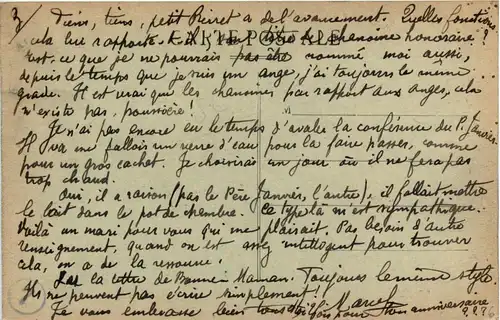 3/ Tiens, tiens, petit Pierret a de l'avancement. Quelles fonctions
cela lui rapporte-t-il, ce titre de chanoine honoraire?
CARTE POSTALE
Est-ce que je ne pourrais pas être nommé moi aussi,
depuis le temps que je suis un ange, j'ai toujours le même
grade. Il est vrai que les chanoines par rapport aux anges, cela
n'existe pas, pauvrière!
Je n'ai pas encore eu le temps d'avaler la conférence du P. Janvier
Il va me falloir un verre d'eau pour la faire passer, comme
pour un gros cachet. Je choisirai un jour où il ne fera pas
trop chaud.
Oui, il a raison (pas le Père Janvier, l'autre), il fallait mettre
le lait dans le pot de chambre. Ce type là m'est sympathique.
Voilà un mari pour vous qui me plairait. Pas besoin d'autre
renseignement, quand on est assez intelligent pour trouver
cela, on a de la ressource.
J'ai la lettre de Bonne Maman. Toujours le même style.
Ils ne peuvent pas écrire simplement!
Je vous embrasse bien tous
pour ton anniversaire ???